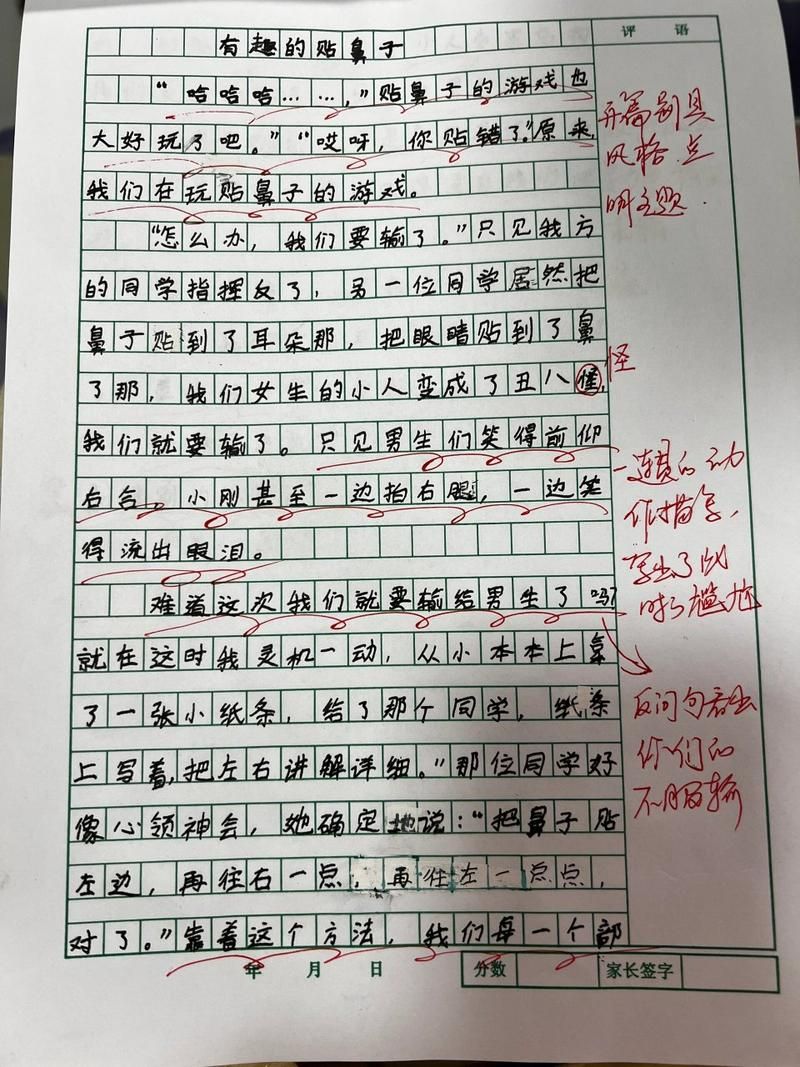 有趣的贴鼻子
评语
“哈哈哈……,”贴鼻子的游戏也
大好玩了吧。”“哎呀，你贴错了。”原来，
我们在玩贴鼻子的游戏。
开篇别具
风格.点
明主题.
“怎么办，我们要输了。”只见我方
的同学指挥反了，另一位同学居然把
鼻子贴到了耳朵那，把眼睛贴到了鼻
了那，我们女生的小人变成了丑八怪，
怪
我们就要输了。只见男生们笑得前仰
右合，小刚甚至一边拍右腿，一边笑
得流出眼泪。
一连贯的动
作描写，
写出了此
时的尴尬
难道这次我们就要输给男生了吗？
就在这时我灵机一动，从小本本上
了一张小纸条，给了那个同学，纸条
上写着，把左右讲解详细。”那位同学好
像心领神会，她确定地说：“把鼻子贴
左边，再往右一点，再往左一点点，
对了。”靠着这个方法，我们每一个部
反问句
你们的
不服输
年 月 日
分数
家长签字